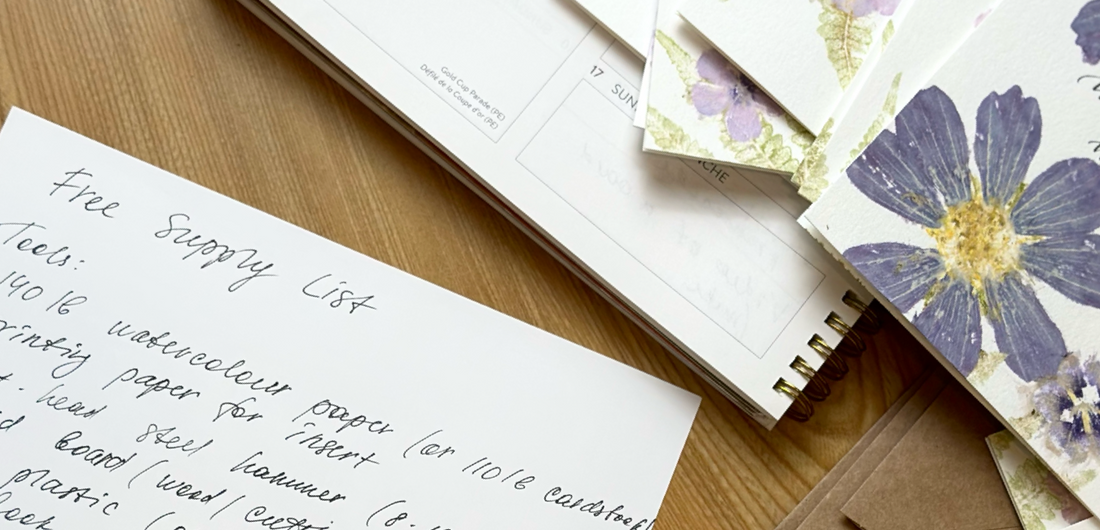 Free Supply List
Tools:
140 lb watercolour paper (or 110 lb cardstock)
printing paper for insert
head steel hammer (8-
board (wood/
plastic
Gold Cup Parade (PE)
Défilé de la Coupe d'or (PE)
17 SUN.
CHE